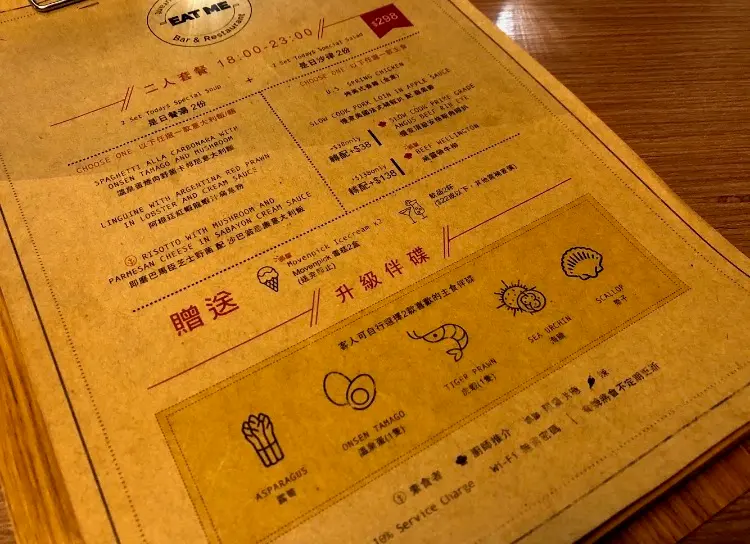 EAT ME
Bar & Restaurant
$298
二人套餐 18:00-23:00
2 Set Todays Special Soup
是日餐湯 2份
+
2 Set Todays Special Salad
是日沙律 2份
CHOOSE ONE 以下任選一款意大利麵
SPAGHETTI ALLA CARBONARA WITH
ONSEN TAMAGO AND MUSHROOM
LINGUINE WITH ARGENTINA RED PRAWN
IN LOBSTER AND CREAM SAUCE
RISOTTO WITH MUSHROOM AND
PARMESAN CHEESE IN SABAYON CREAM SAUCE
CHOOSE ONE 以下任選一款主食
SPRING CHICKEN
SLOW COOK PORK LOIN IN APPLE SAUCE
+$38only
轉配+$38
SLOW COOK PRIME GRADE
ANGUS BEEF RIB EYE
+$138only
轉配+$138
BEEF WELLINGTON
贈送
Movenpick Icecream x2
Movenpick 雪糕2盒
(送完即止)
飲品2杯
升級伴碟
客人可自行選擇2款喜歡的主食伴碟
ASPARAGUS
露筍
ONSEN TAMAGO
溫泉蛋(1隻)
TIGER PRAWN
虎蝦(1隻)
SEA URCHIN
海膽
SCALLOP
帶子
素食者
廚師推介
辣
10% Service Charge
Wi-Fi